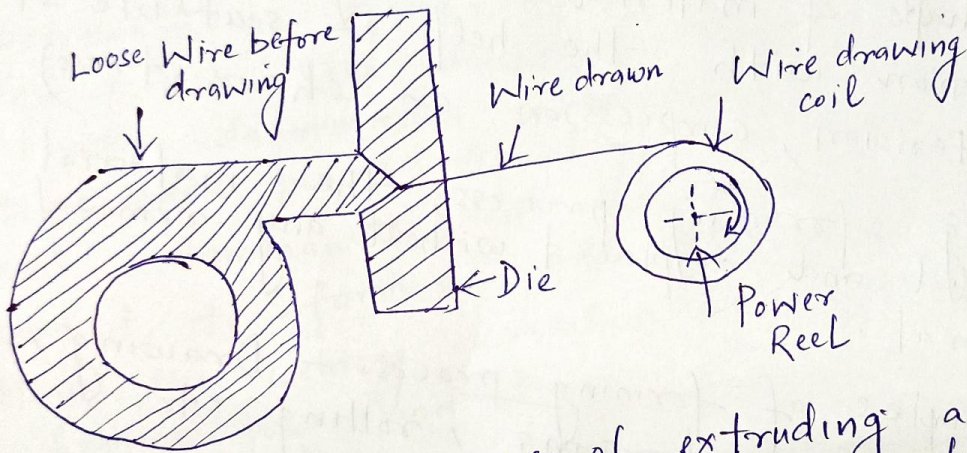 Loose Wire before
drawing
Wire drawn
Wire drawing
coil
Die
Power
Reel
of extruding a